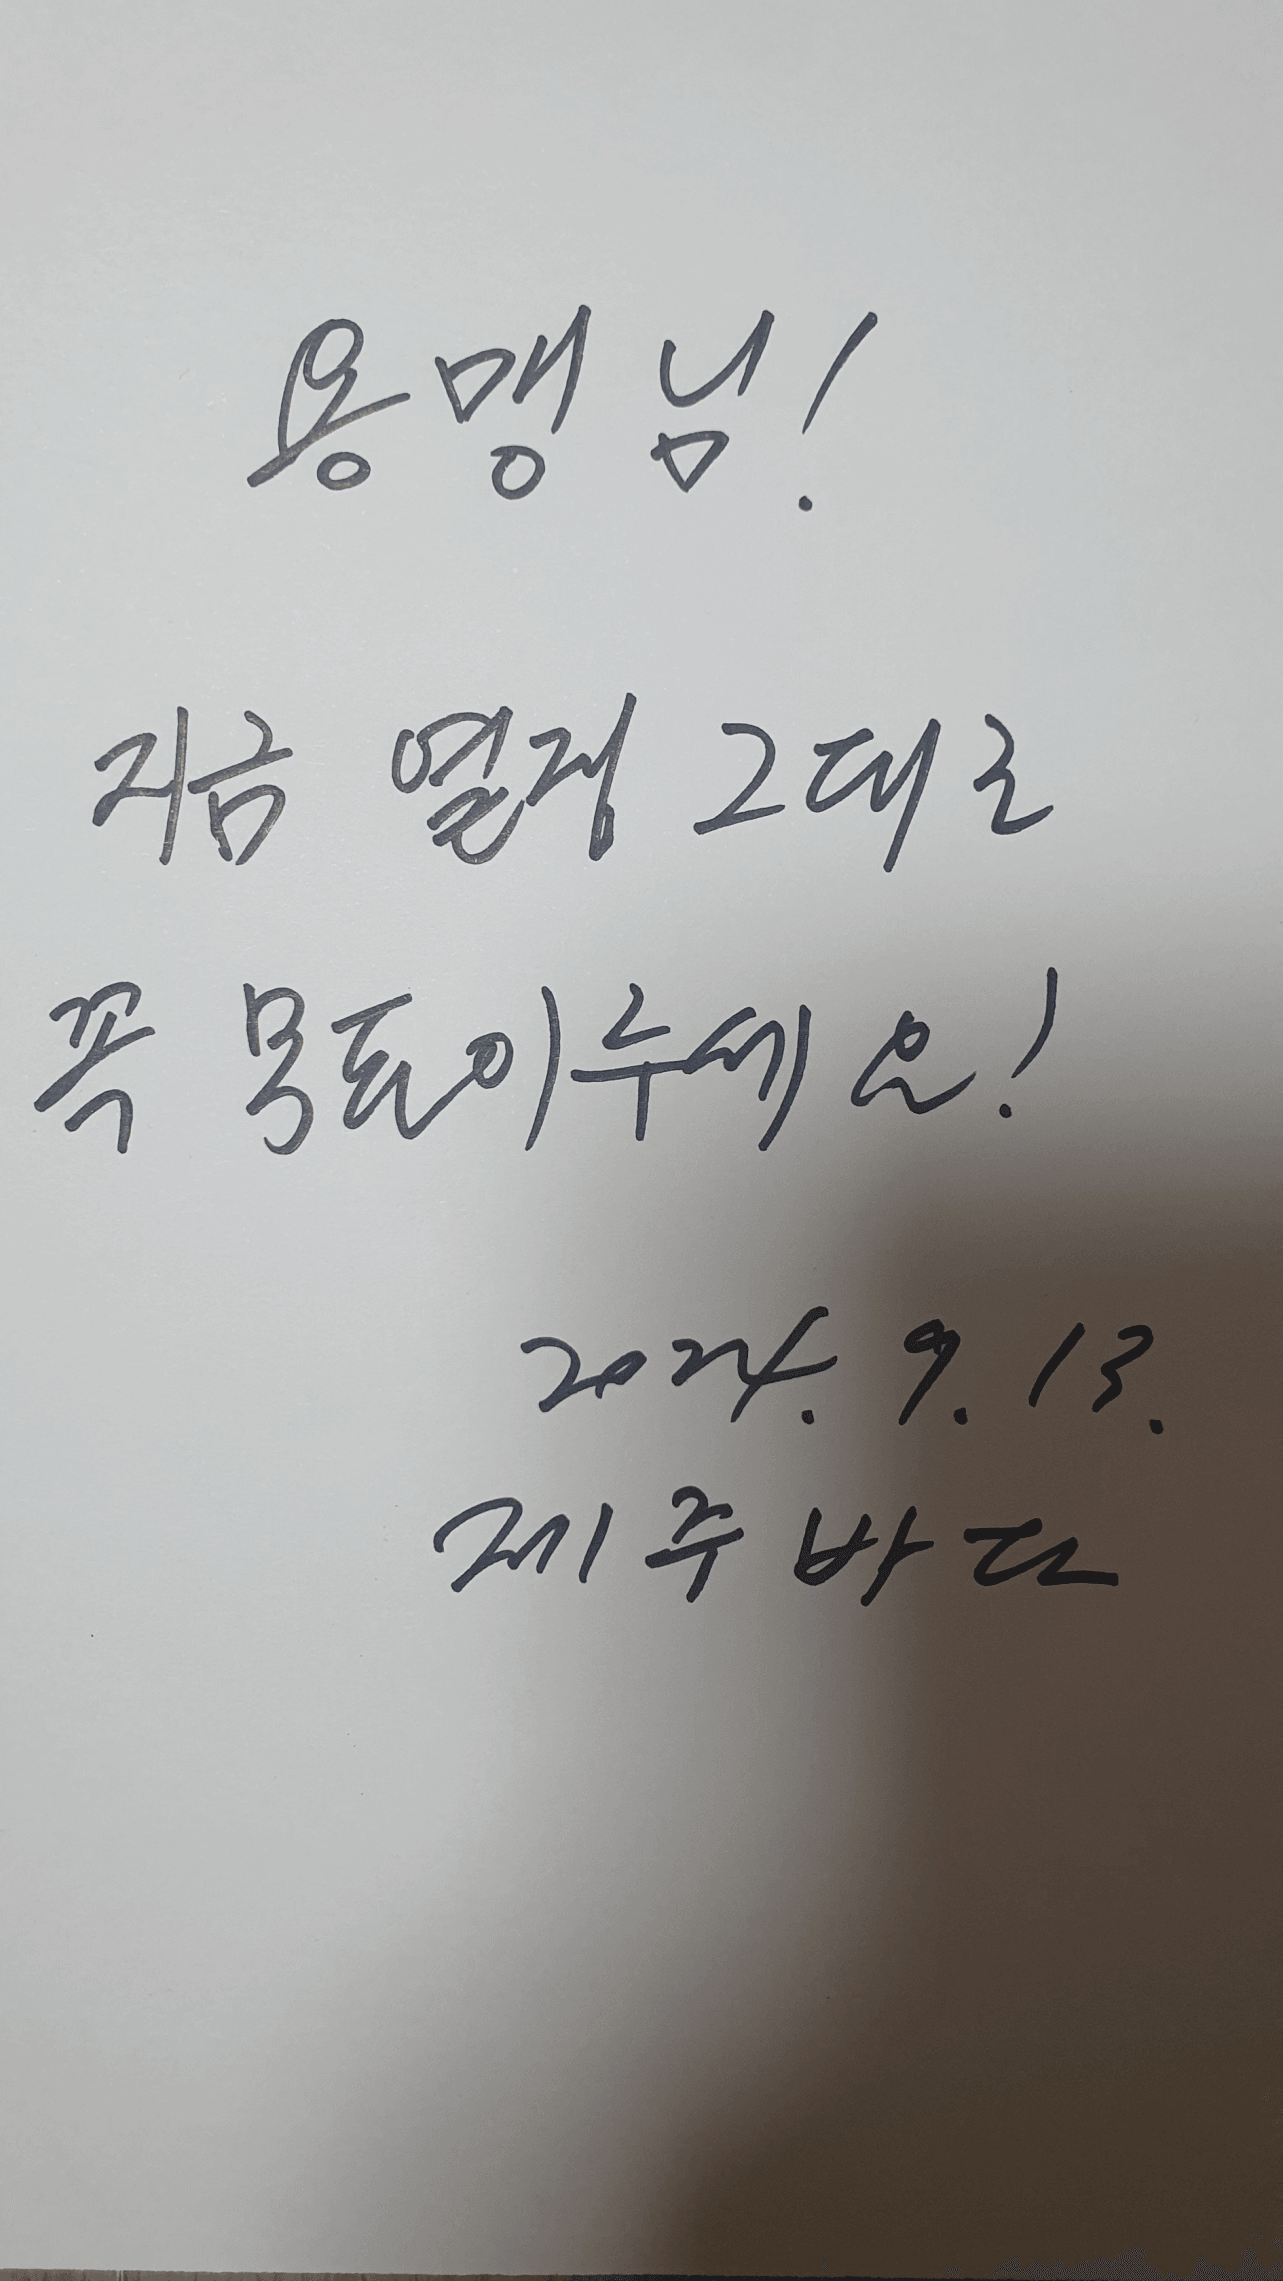 용맹님!
지금 열정 그대로
꼭 목표 이루세요!
2024. 9. 13.
제주바다